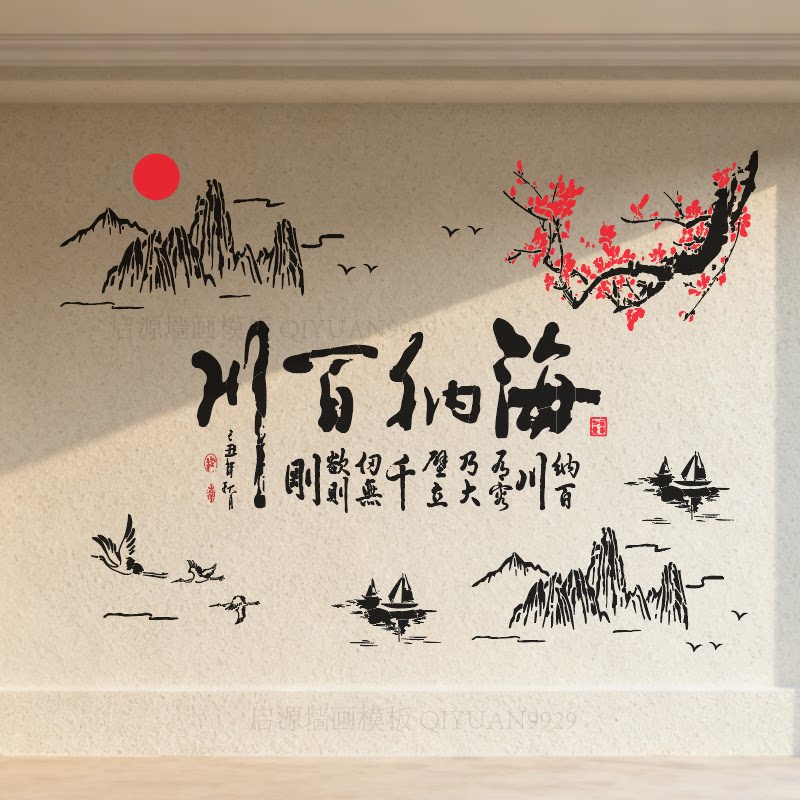 启源墙画模板 QIYUAN9929
海納百川
納百
川
有容
乃大
壁立
千
仞無
欲則
剛
己丑年秋月
启源墙画模板 QIYUAN9929